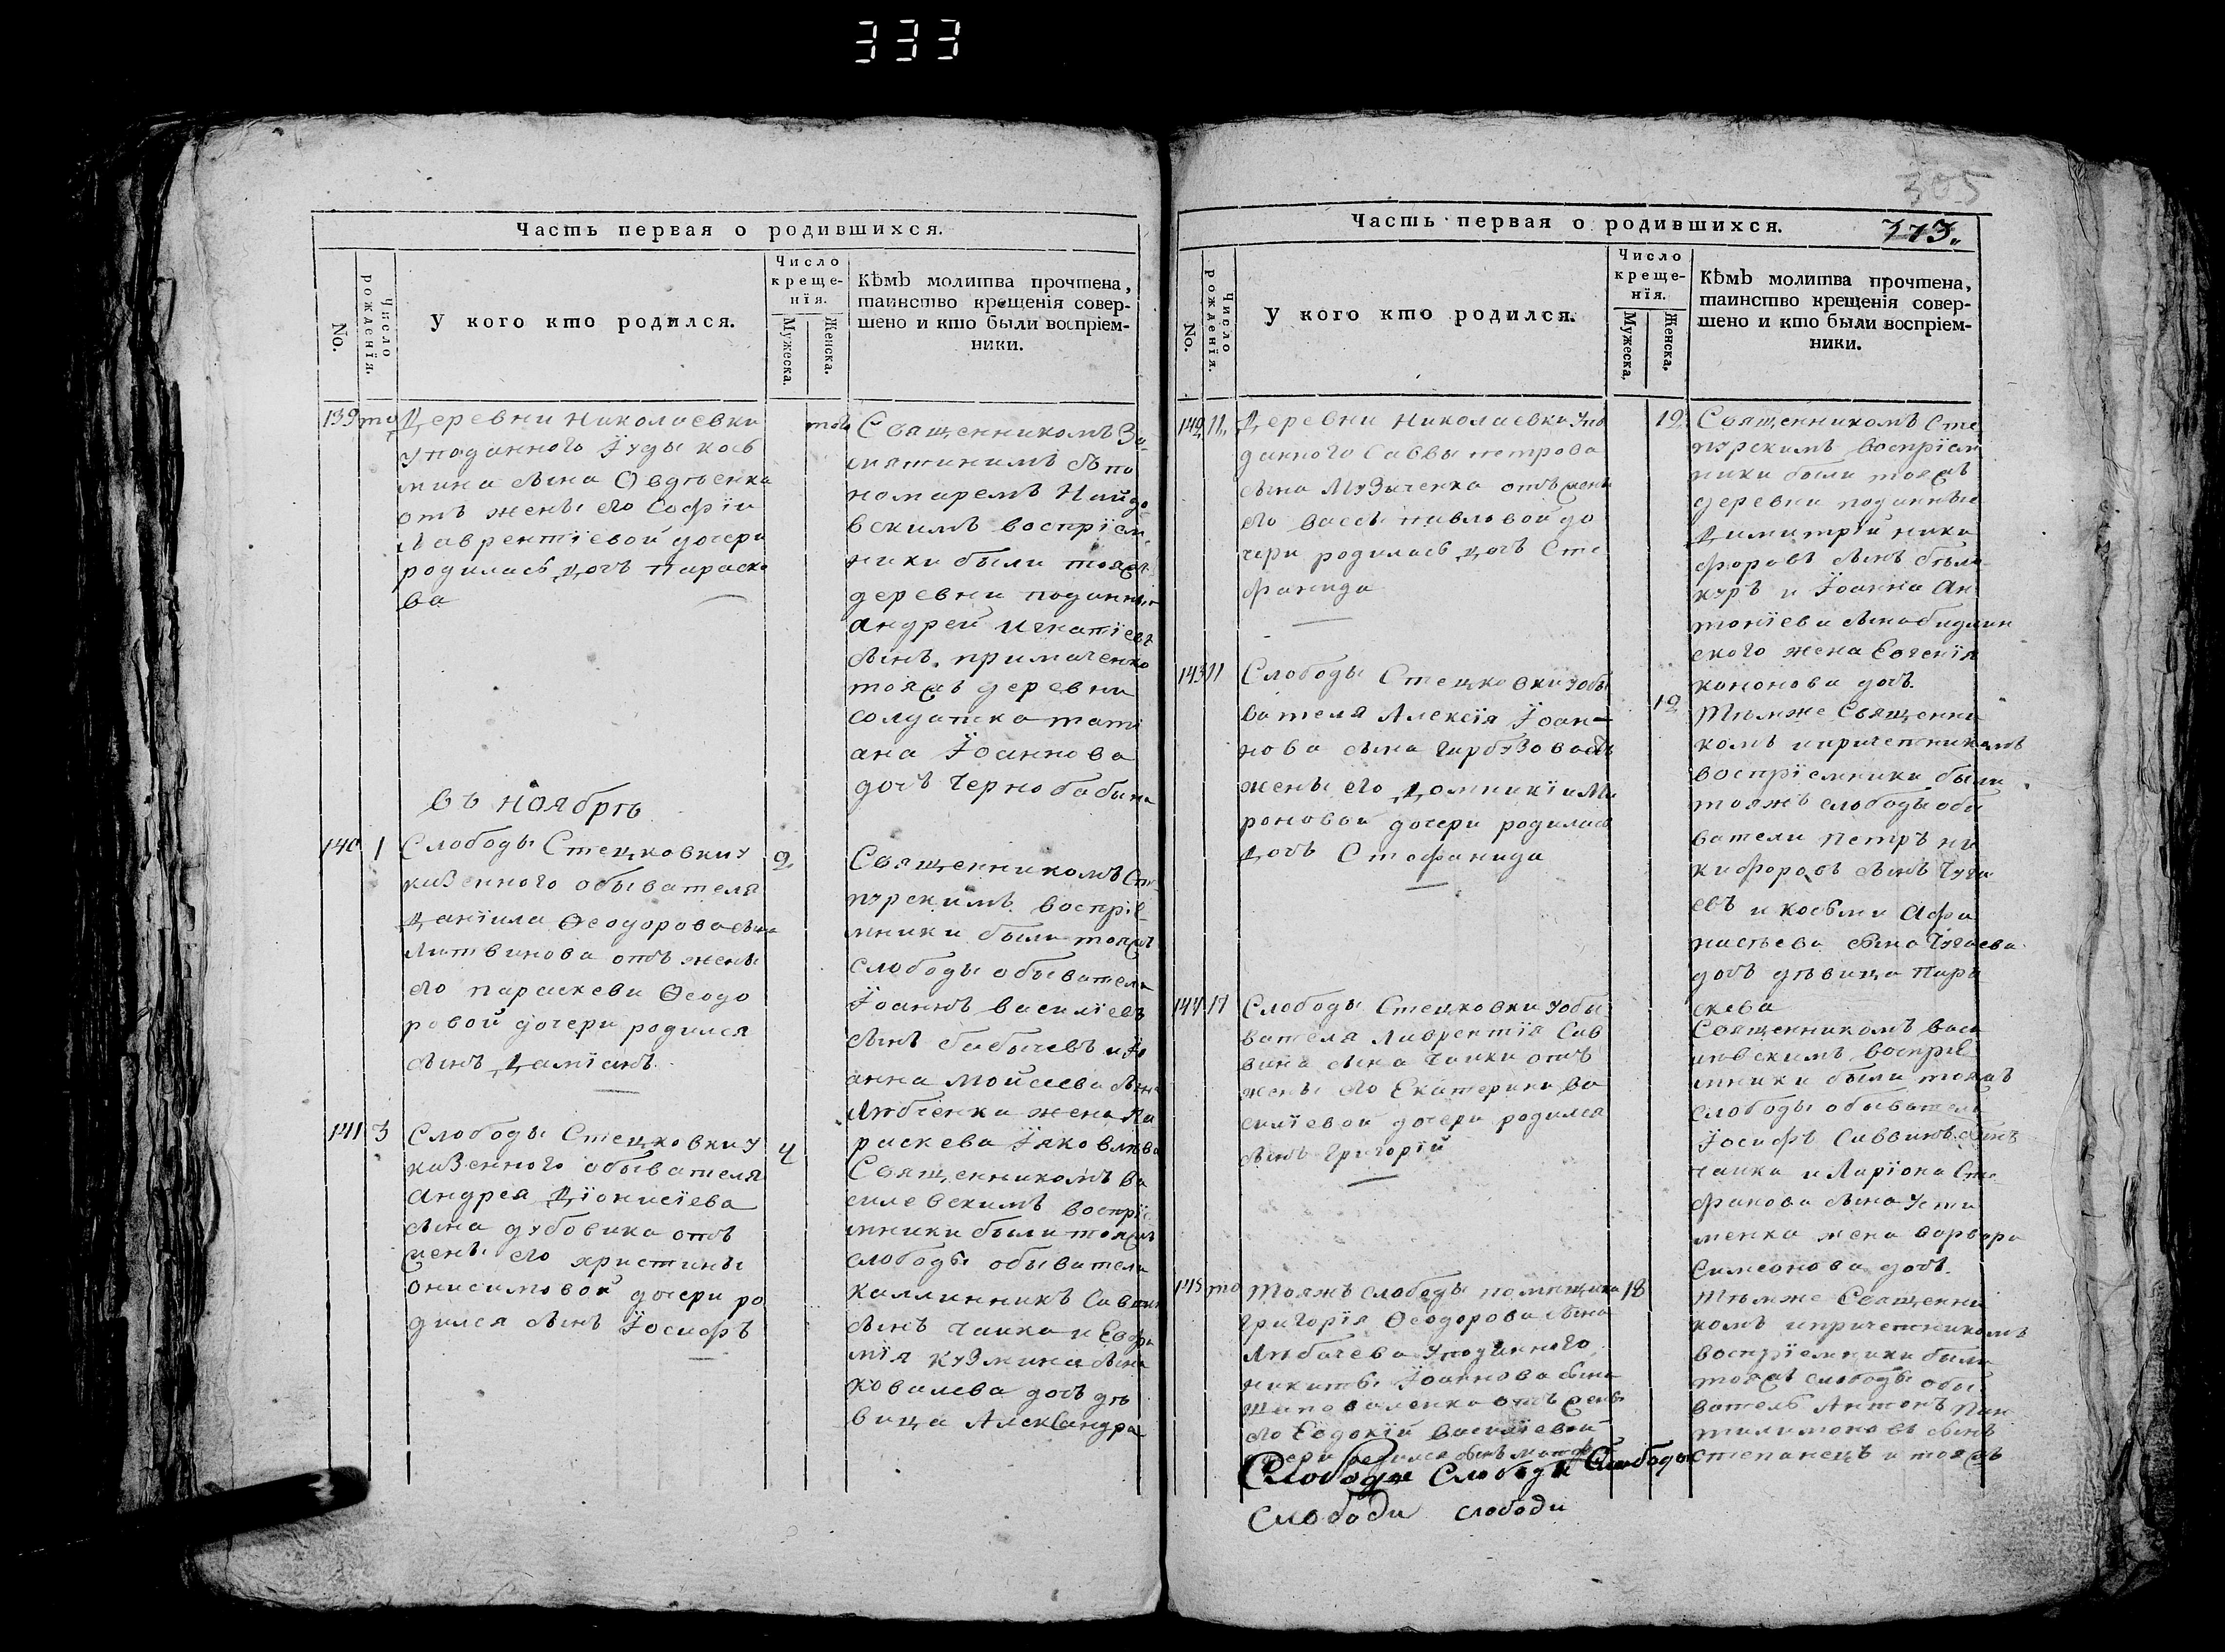 333
Часть первая о родившихся.
No.
Число рожденїя.
У кого кто родился.
Число
креще-
нїя.
Мужеска.
Женска.
Кѣмъ молитва прочтена,
таинство крещенїя совер-
шено и кто были воспрїем-
ники.
139
Деревни Николаевки
уподанного Їуды косъ
мина сына Овдѣенка
отъ жены его Софїи
Лаврентїевой дочери
родилась дочъ параске
ва
Священникомъ За
номаремъ Найдо
вскимъ воспрїем
ники были тояжъ
деревни поданные
андрей игнатїевъ
сынъ примаченко
тояжъ деревни
солдатска тати
ана Їоаннова
дочъ Чернобабина
Въ ноябрѣ
140 1
Слободы Стецковки у
казенного обывателя
Данїила Ѳеодорова сына
Литвинова отъ жены
его параскеви Ѳеодо
ровой дочери родился
сынъ Дамїанъ.
2
Священникомъ Сте
пурскимъ воспрїе
мники были тояжъ
слободы обыватели
Їоаннъ василїевъ
сынъ бабычевъ и Їо
анна Мойсеева сына
Любченка жена Па
раскева Їяковлева
141 3
Слободы Стецковки у
казенного обывателя
андрея Дїонисїева
сына дубовика отъ
жены его христины
онисимовой дочери ро
дился сынъ Їосифъ
4
Священникомъ Ва
силевскимъ воспрїе
мники были тояжъ
слободы обыватели
каллинникъ Саввинъ
сынъ чайка и Евфи
мїя кузмина сына
ковалева дочъ дѣ
вица Александра
305
313.
Часть первая о родившихся.
No.
Число рожденїя.
У кого кто родился.
Число
креще-
нїя.
Мужеска.
Женска.
Кѣмъ молитва прочтена,
таинство крещенїя совер-
шено и кто были воспрїем-
ники.
142 11
Деревни Николаевки упо
данного Саввы петрова
сына Музыченка отъ жены
его вассы павловой до
чери родилась дочъ Сте
фанида
12
Священникомъ Сте
пурскимъ воспрїем
ники были тояжъ
деревни поданные
Димитрїй ники
форовъ сынъ бѣло
куръ и Їоанна Ан
тонїева сына
ского жена Евгенїя
кононова дочъ.
143 11
Слободы Стецковки уобы
вателя Алексїя Їоан-
нова сына Гарбузова отъ
жены его Домникїи Ми
роновой дочери родилась
Дочъ Стефанида
12
Тѣмже Священни
комъ ипричетникомъ
воспрїемники были
тояжъ слободы обы
ватели петръ ни
кифоровъ сынъ Чуга
евъ и косьми Афа
насьева сына Чугаева
дочъ дѣвица Пара
скева
144 17
Слободы Стецковки уобы
вателя Лаврентїя Сав
вина сына Чайки отъ
жены его Екатерины Ва
силїевой дочери родился
сынъ Григорїй
Священникомъ васи
левскимъ воспрїе
мники были тояжъ
слободы обыватели
Їосифъ Саввинъ сынъ
чайка и Ларїона Сте
фанова сына Усти
менка жена варвара
Симеонова дочъ.
145 то
тояжъ слободы помѣщика
григорїя Ѳеодорова сына
Любачева уподанного
никиты Їоаннова сына
Шаповаленка отъ жены
его Евдокїй василїевой
дочери родился сынъ
18
Тѣмже Священни
комъ ипричетникомъ
воспрїемники были
тояжъ слободы обы
ватель Антонъ Пан
тилимоновъ сынъ
степанецъ и тояжъ
Слободы Слободы Слободы
Слободи слободи